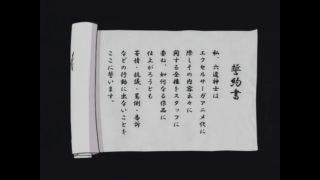 誓約書
私、六道神士は
エクセルサーガアニメ化に
際しその内容云々に
関する全権をスタッフに
委ね、如何なる作品に
仕上がろうとも
苦情・抗議・罵倒・告訴
などの行動に出ないことを
ここに誓います。